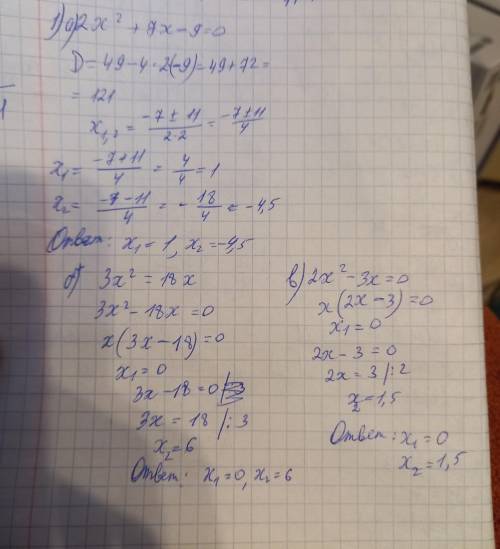 1) а) 2x² + 7x - 9 = 0
D = 49 - 4 · 2(-9) = 49 + 72 =
= 121
x₁,₂ = (-7 ± 11)/(2·2) = (-7 ± 11)/4
x₁ = (-7 + 11)/4 = 4/4 = 1
x₂ = (-7 - 11)/4 = - 18/4 = -4,5
Ответ: x₁ = 1, x₂ = -4,5
б) 3x² = 18x
3x² - 18x = 0
x(3x - 18) = 0
x₁ = 0
3x - 18 = 0
3x = 18 |: 3
x₂ = 6
Ответ: x₁ = 0, x₂ = 6
в) 2x² - 3x = 0
x(2x - 3) = 0
x₁ = 0
2x - 3 = 0
2x = 3 |: 2
x₂ = 1,5
Ответ: x₁ = 0
x₂ = 1,5